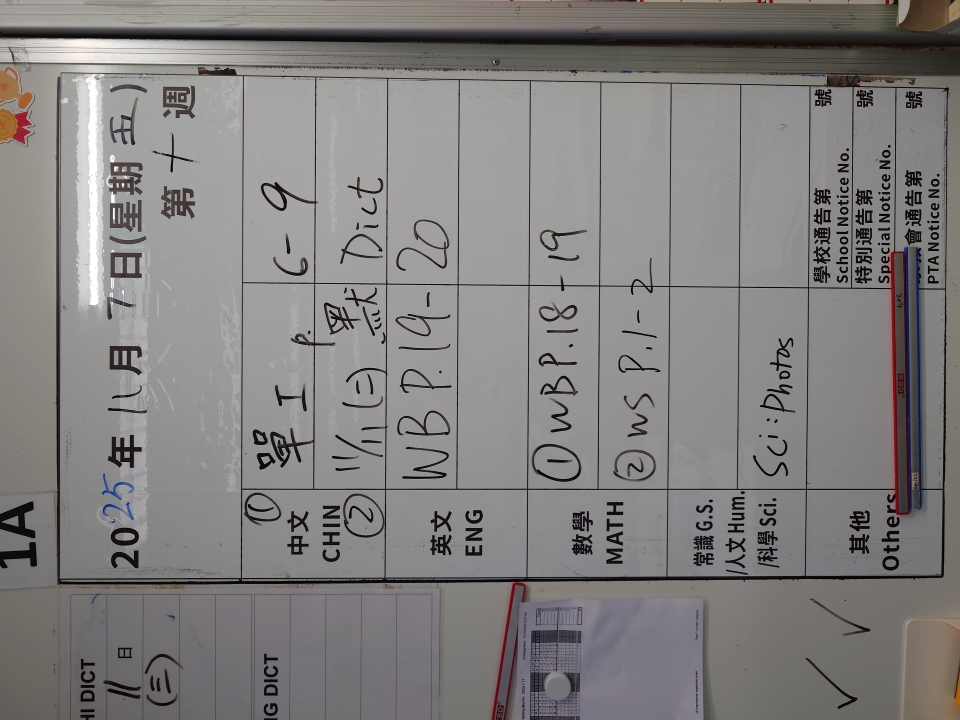 1A
2025年11月7日(星期五)
第十週
中文
CHIN
① 單工 p. 6-9
② 11/11 (二) 默 Dict
英文
ENG
WB P.19-20
數學
MATH
① WB P.18-19
② WS P.1-2
常識 G.S.
/人文 Hum.
/科學 Sci.
Sci: Photos
其他
Others
學校通告第 號
School Notice No.
特別通告第 號
Special Notice No.
會通告第 號
PTA Notice No.
HI DICT
11日
(三)
G DICT